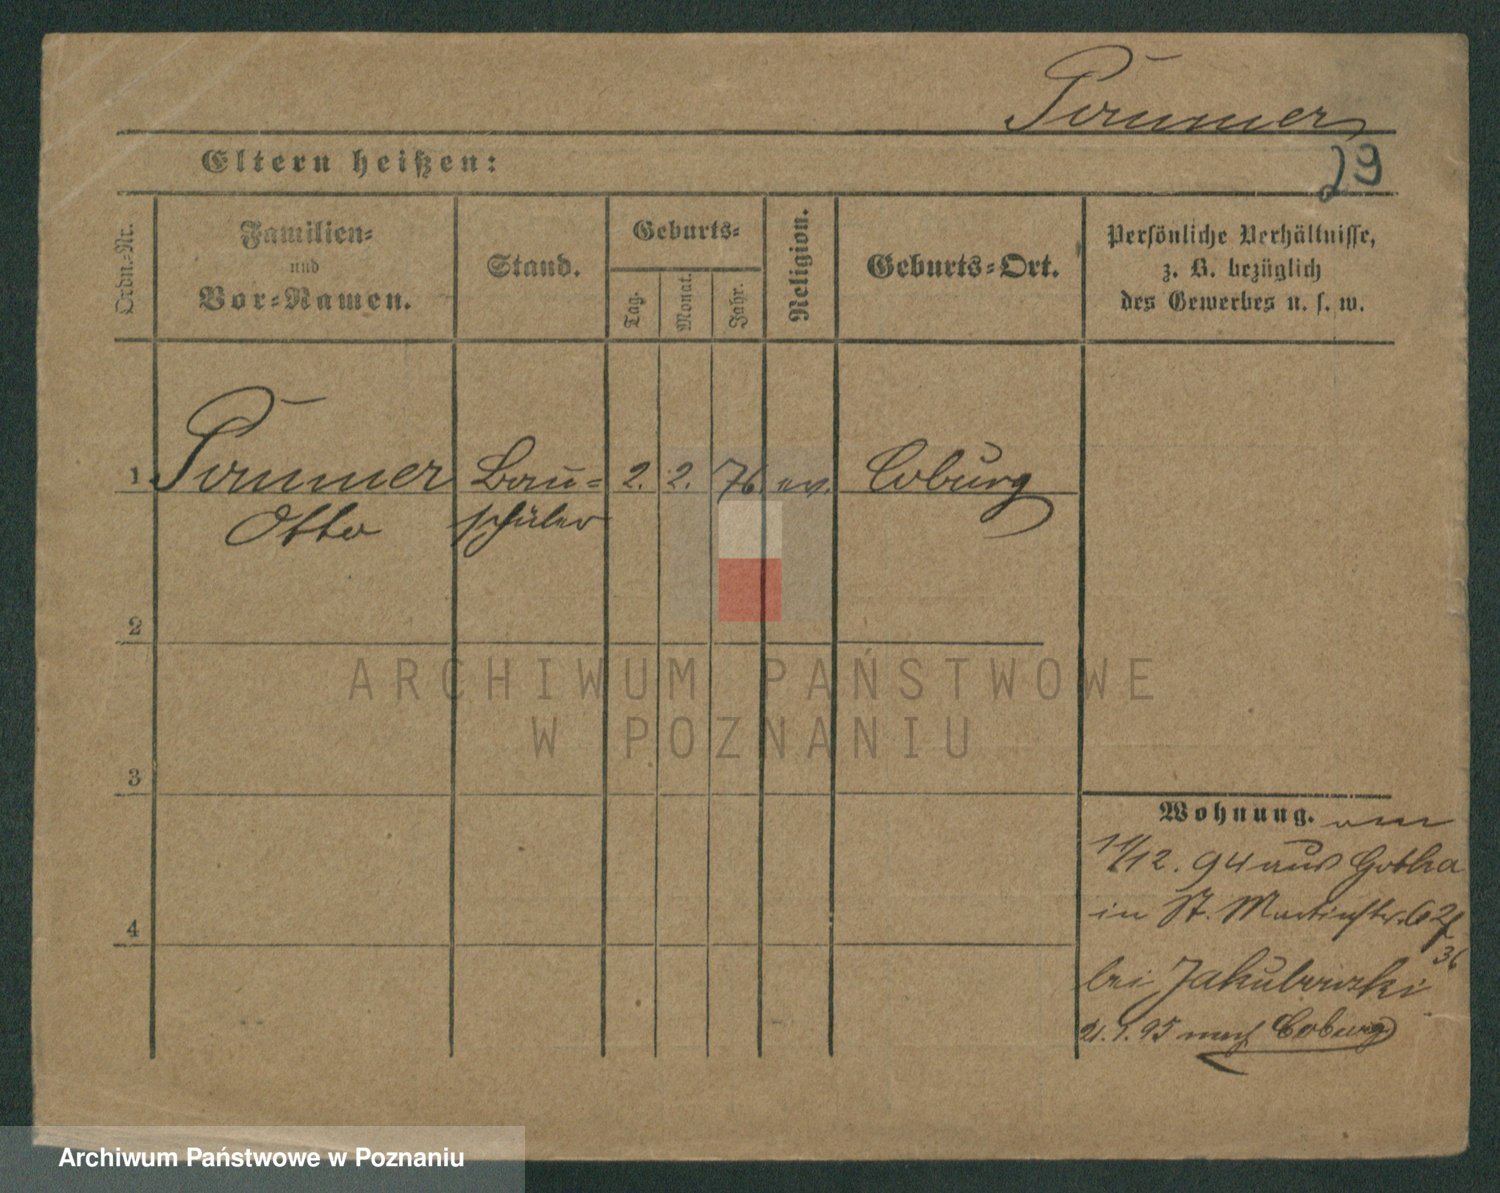 29
Eltern heißen:
Ordn.-Nr.
Familien-
und
Vor-Namen.
Stand.
Geburts-
Tag.
Monat.
Jahr.
Religion.
Geburts-Ort.
Persönliche Verhältnisse,
z. B. bezüglich
des Gewerbes u. s. w.
1 Bau- 2. 2. 76 ev. Coburg
Otto schüler
2
ARCHIWUM PAŃSTWOWE
W POZNANIU
3
Wohnung. am
11/12. 94 aus Gotha
4
in St. Martinstr. 62
36
bei Jakubowski
2. 1. 95 nach Coburg
Archiwum Państwowe w Poznaniu